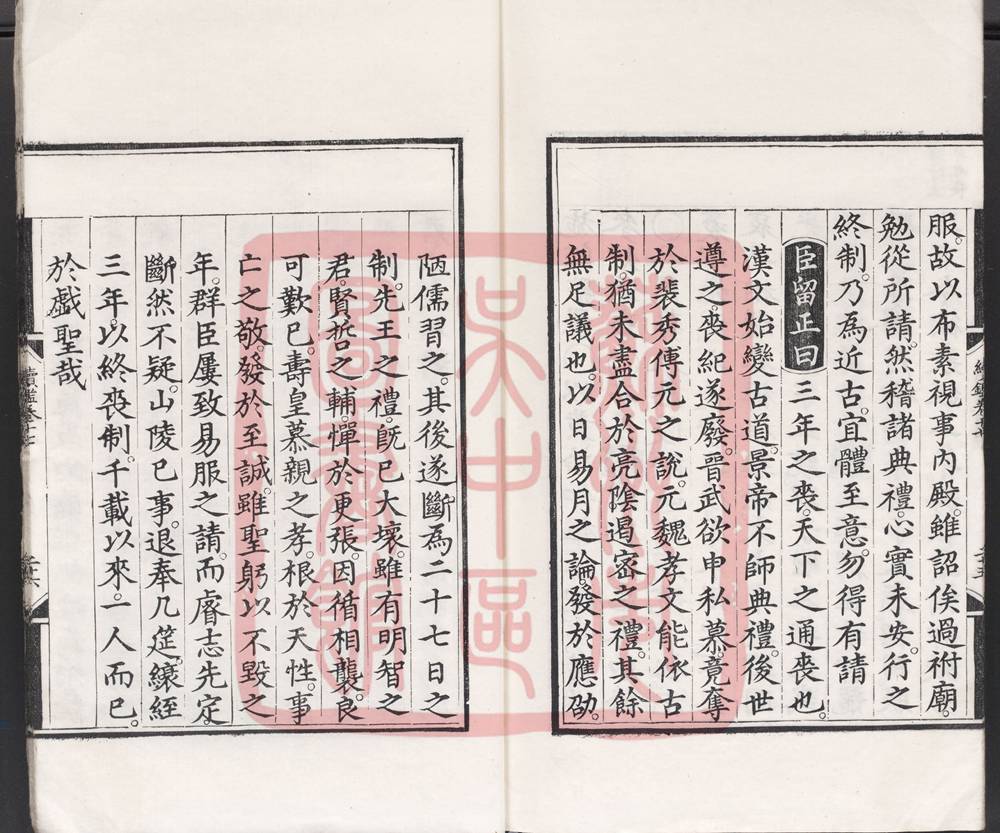 服。故以布素視事內殿。雖詔俟過祔廟。
勉從所請。然稽諸典禮。心實未安。行之
終制。乃為近古。宜體至意。勿得有請
臣留正曰三年之喪。天下之通喪也。
漢文始變古道。景帝不師典禮。後世
遵之。喪紀遂廢。晉武欲申私慕。竟奪
於裴秀傅元之說。元魏孝文能依古
制。猶未盡合於亮陰。遏密之禮。其餘
無足議也。以日易月之論。發於應劭。
陋儒習之。其後遂斷為二十七日之
制。先王之禮。既已大壞。雖有明智之
君。賢哲之輔。憚於更張。因循相襲。良
可歎已。壽皇慕親之孝。根於天性。事
亡之敬。發於至誠。雖聖躬以不毀之
年。群臣屢致易服之請。而睿志先定
斷然不疑。山陵已事。退奉几筵。縗絰
三年。以終喪制。千載以來。一人而已。
於戲聖哉